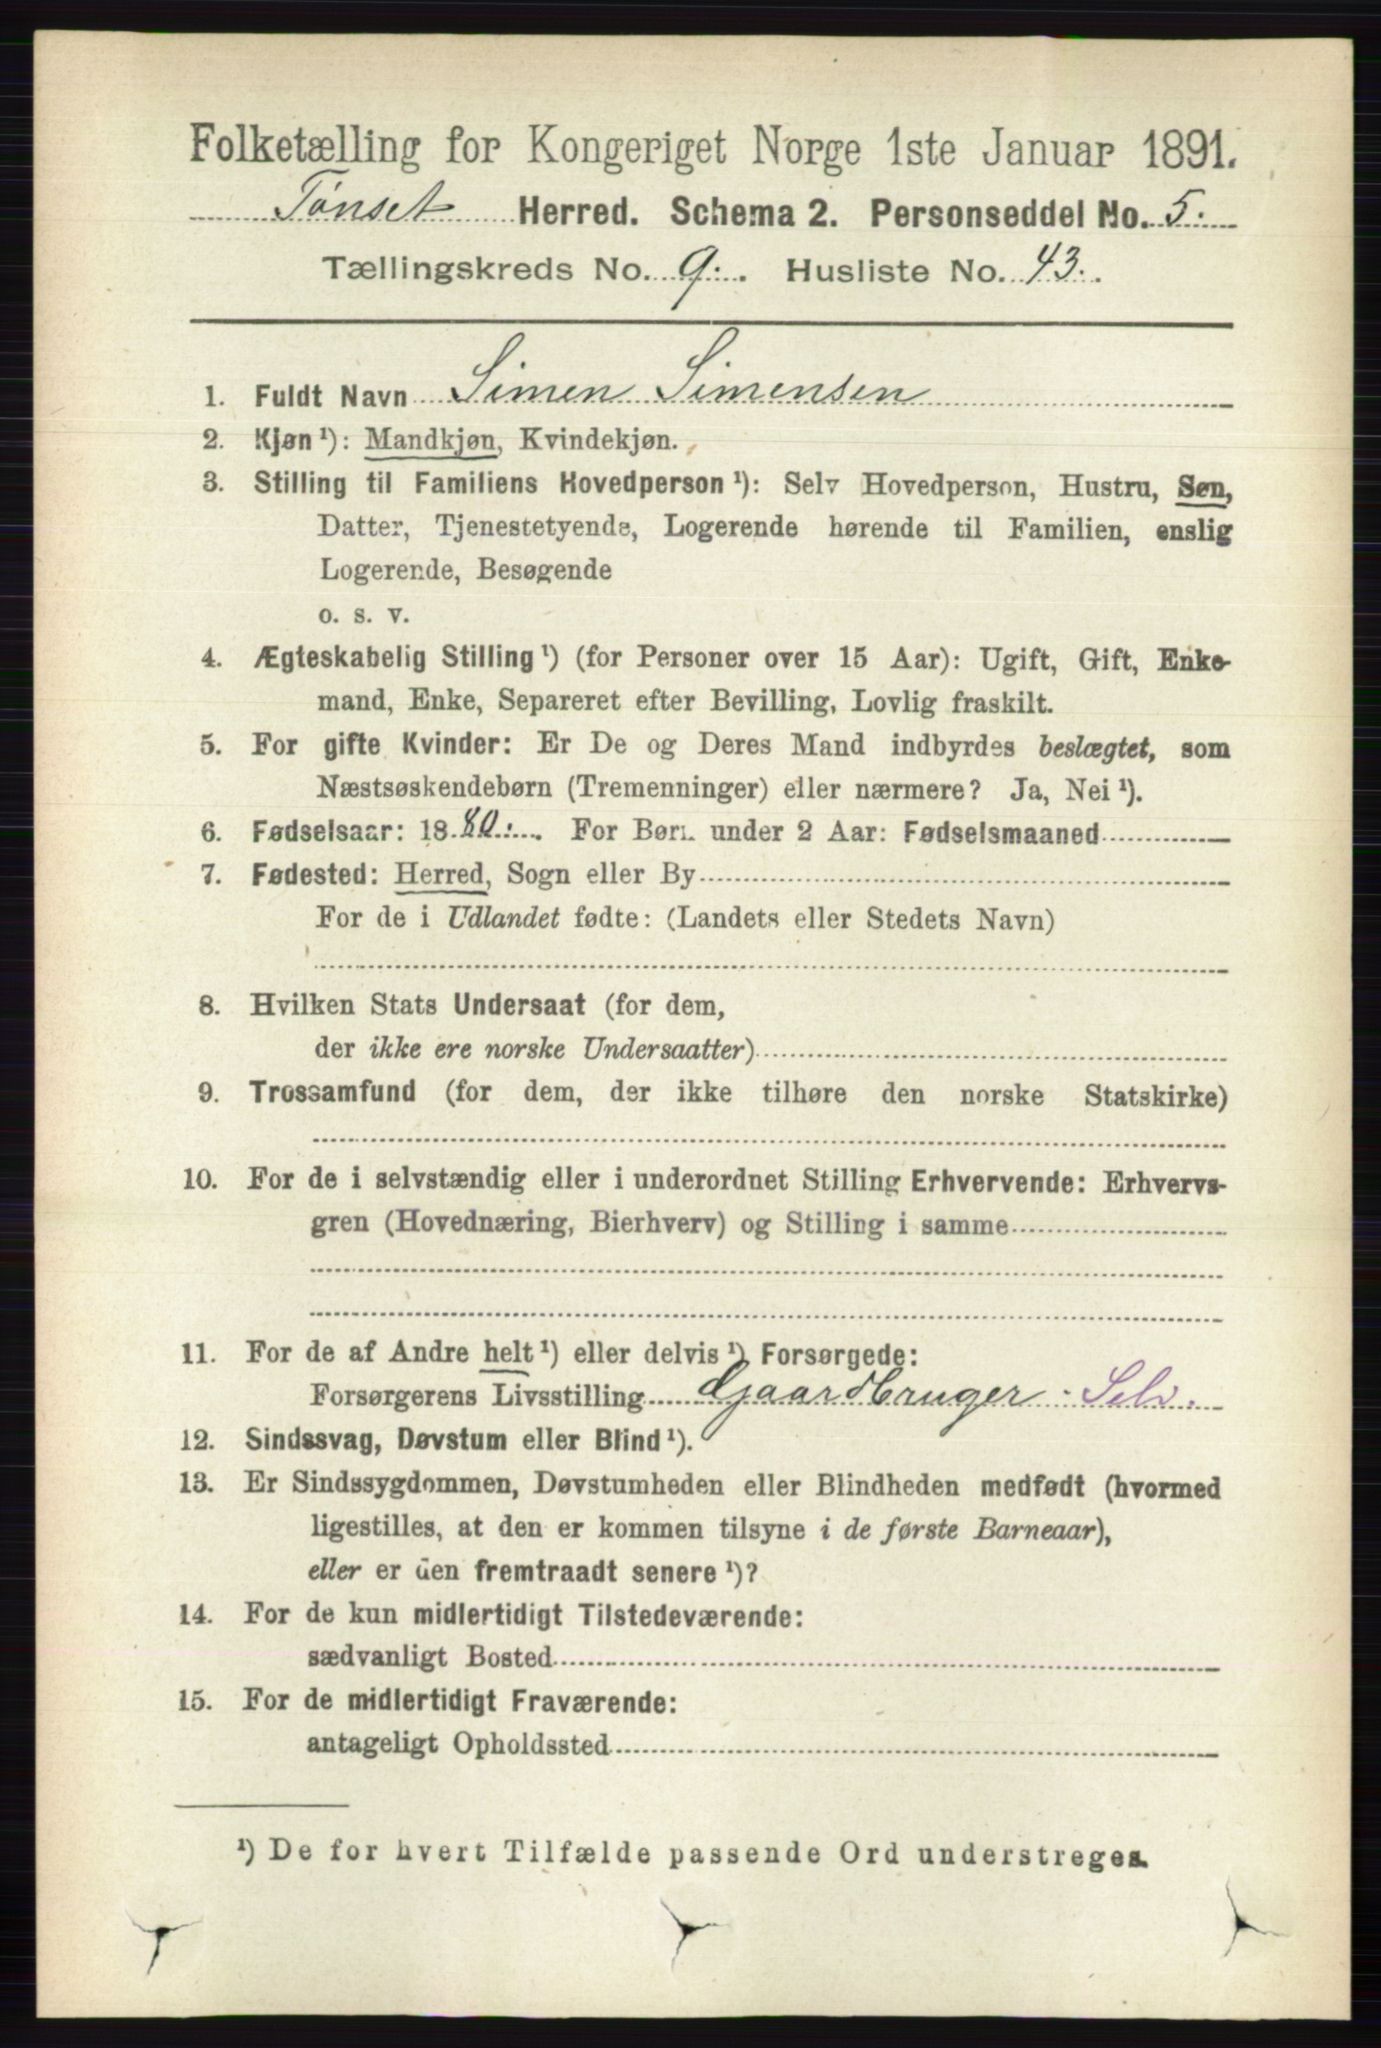 Folketælling for Kongeriget Norge 1ste Januar 1891.
Tønset Herred. Schema 2. Personseddel No. 5.
Tællingskreds No. 9. Husliste No. 43.
1. Fuldt Navn Simen Simensen
2. Kjøn ¹): Mandkjøn, Kvindekjøn.
3. Stilling til Familiens Hovedperson ¹): Selv Hovedperson, Hustru, Søn,
Datter, Tjenestetyende, Logerende hørende til Familien, enslig
Logerende, Besøgende
o. s. v.
4. Ægteskabelig Stilling ¹) (for Personer over 15 Aar): Ugift, Gift, Enke-
mand, Enke, Separeret efter Bevilling, Lovlig fraskilt.
5. For gifte Kvinder: Er De og Deres Mand indbyrdes beslægtet, som
Næstsøskendebørn (Tremenninger) eller nærmere? Ja, Nei ¹).
6. Fødselsaar: 1880. For Børn under 2 Aar: Fødselsmaaned
7. Fødested: Herred, Sogn eller By
For de i Udlandet fødte: (Landets eller Stedets Navn)
8. Hvilken Stats Undersaat (for dem,
der ikke ere norske Undersaatter)
9. Trossamfund (for dem, der ikke tilhøre den norske Statskirke)
10. For de i selvstændig eller i underordnet Stilling Erhvervende: Erhvervs-
gren (Hovednæring, Bierhverv) og Stilling i samme
11. For de af Andre helt ¹) eller delvis ¹) Forsørgede:
Forsørgerens Livsstilling Gaardbruger. Selv.
12. Sindssvag, Døvstum eller Blind ¹).
13. Er Sindssygdommen, Døvstumheden eller Blindheden medfødt (hvormed
ligestilles, at den er kommen tilsyne i de første Barneaar),
eller er den fremtraadt senere ¹)?
14. For de kun midlertidigt Tilstedeværende:
sædvanligt Bosted
15. For de midlertidigt Fraværende:
antageligt Opholdssted
¹) De for hvert Tilfælde passende Ord understreges.